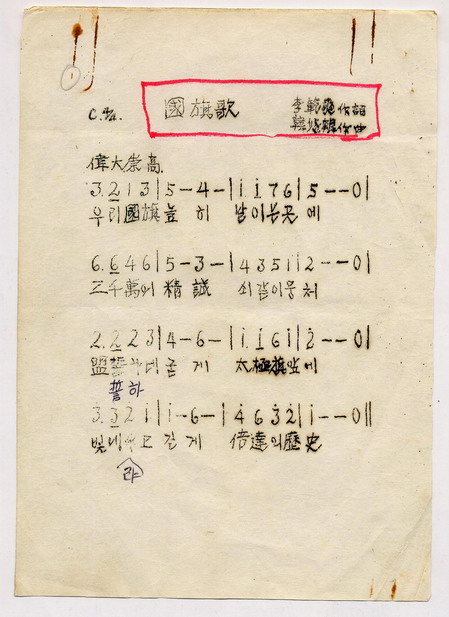 ①
C. 4/4. 國旗歌 李範奭 作詞
韓悠韓 作曲
偉大崇高.
3. 2 1 3 | 5 - 4 - | i i 7 6 | 5 - - 0 |
우리國旗 높히 날이는곳에
6. 6 4 6 | 5 - 3 - | 4 3 5 1 | 2 - - 0 |
三千萬에 精誠 쇠같이뭉처
2. 2 2 3 | 4 - 6 - | i. i 6 i | 2 - - 0 |
盟誓 굳게 太極旗앞에
誓하
3. 3 2 i | i - 6 - | 4 6 3 2 | i - - 0 ||
빛내 길게 倍達의歷史
라